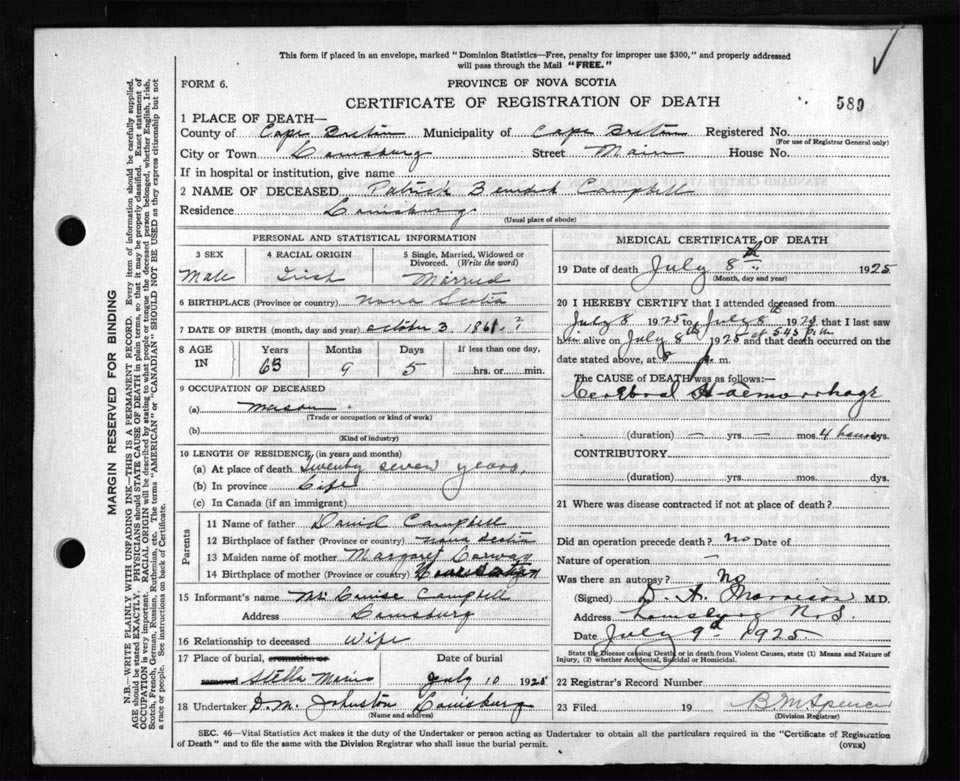 This form if placed in an envelope, marked "Dominion Statistics—Free, penalty for improper use $300," and properly addressed
will pass through the Mail "FREE."
FORM 6.
PROVINCE OF NOVA SCOTIA
CERTIFICATE OF REGISTRATION OF DEATH
589
1 PLACE OF DEATH—
County of Cape Breton Municipality of Cape Breton Registered No.
(For use of Registrar General only)
City or Town Louisburg Street Main House No.
If in hospital or institution, give name
2 NAME OF DECEASED Patrick Campbell
Residence Louisburg
(Usual place of abode)
PERSONAL AND STATISTICAL INFORMATION
3 SEX
Male
4 RACIAL ORIGIN
Irish
5 Single, Married, Widowed or
Divorced. (Write the word)
Married
6 BIRTHPLACE (Province or country) Nova Scotia
7 DATE OF BIRTH (month, day and year) October 3 1861 ?
8 AGE
IN
Years
63
Months
9
Days
5
If less than one day,
hrs. or min.
9 OCCUPATION OF DECEASED
(a) Mason
(Trade or occupation or kind of work)
(b)
(Kind of industry)
10 LENGTH OF RESIDENCE (in years and months)
(a) At place of death Twenty seven years,
(b) In province Life
(c) In Canada (if an immigrant)
Parents
11 Name of father David Campbell
12 Birthplace of father (Province or country) Nova Scotia
13 Maiden name of mother Margaret
14 Birthplace of mother (Province or country) Nova Scotia
15 Informant's name Mrs Louise Campbell
Address Louisburg
16 Relationship to deceased Wife
17 Place of burial, cremation or
removal Stella Maris
Date of burial
July 10 1925
18 Undertaker D.M. Johnston Louisburg
(Name and address)
MEDICAL CERTIFICATE OF DEATH
19 Date of death July 8th 1925
(Month, day and year)
20 I HEREBY CERTIFY that I attended deceased from
July 8 1925 to July 8th 1925, that I last saw
him alive on July 8th 1925 at 5.45 p.m and that death occurred on the
date stated above, at 8 p. m.
The CAUSE of DEATH was as follows:—
Cerebral Haemorrhage
(duration) — yrs. — mos. 4 hours dys.
CONTRIBUTORY
(duration) yrs. mos. dys.
21 Where was disease contracted if not at place of death?
Did an operation precede death? No Date of
Nature of operation —
Was there an autopsy? No
(Signed) D. A. Morrison M.D.
Address Louisburg N.S.
Date July 9th 1925
State the Disease causing Death or in death from Violent Causes, state (1) Means and Nature of
Injury, (2) whether Accidental, Suicidal or Homicidal.
22 Registrar's Record Number
23 Filed 19 B M Spencer
(Division Registrar)
SEC. 46—Vital Statistics Act makes it the duty of the Undertaker or person acting as Undertaker to obtain all the particulars required in the "Certificate of Registration
of Death" and to file the same with the Division Registrar who shall issue the burial permit.
(OVER)
MARGIN RESERVED FOR BINDING
N.B.—WRITE PLAINLY WITH UNFADING INK—THIS IS A PERMANENT RECORD. Every item of information should be carefully supplied.
AGE should be stated EXACTLY. PHYSICIANS should STATE CAUSE OF DEATH in plain terms, so that it may be properly classified. Exact statement of
OCCUPATION is very important. RACIAL ORIGIN will be described by stating to what people or tongue the deceased person belonged, whether English, Irish,
Scotch, French, German, Russian, Ruthenian, etc. The terms "AMERICAN" or "CANADIAN" SHOULD NOT BE USED as they express citizenship but not
a race or people. See instructions on back of Certificate.